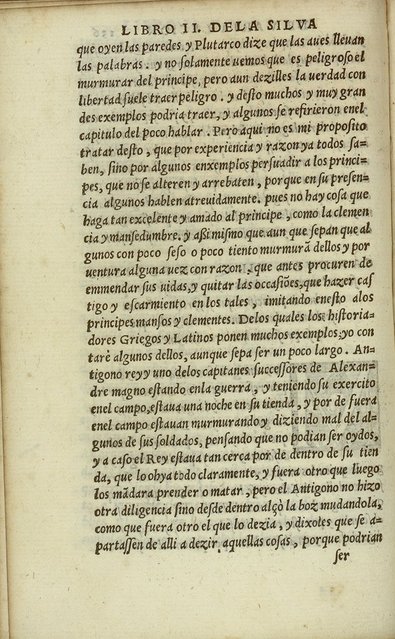 LIBRO II. DE LA SILVA
que oyen las paredes y Plutarco dize que las aues lleuan
las palabras. y no solamente uemos que es peligroso el
murmurar del principe, pero aun dezilles la verdad con
libertad suele traer peligro. y desto muchos y muy gran
des exemplos podria traer, y algunos se refirieron enel
capitulo del poco hablar. Pero aqui no es mi proposito
tratar desto, que por experiencia y razon ya todos sa-
ben, sino por algunos enxemplos persuadir a los princi-
pes, que no se alteren y arrebaten, porque en su presen-
cia algunos hablen atreuidamente. pues no hay cosa que
haga tan excelente y amado al principe, como la clemen
cia y mansedumbre. y aßi mismo que aun que sepan que al
gunos con poco seso o poco tiento murmurã dellos y por
uentura alguna uez con razon, que antes procuren de
emmendar sus uidas, y quitar las occasiões, que hazer cas
tigo y escarmiento en los tales, imitando enesto alos
principes mansos y clementes. Delos quales los historia-
dores Griegos y Latinos ponen muchos exemplos: yo con
tarè algunos dellos, aunque sepa ser un poco largo. An-
tigono rey y uno delos capitanes successores de Alexan-
dre magno estando enla guerra, y teniendo su exercito
enel campo, estaua una noche en su tienda, y por de fuera
enel campo estauan murmurando y diziendo mal del al-
gunos de sus soldados, pensando que no podian ser oydos,
y a caso el Rey estaua tan cerca por de dentro de su tien
da, que lo ohya todo claramente, y fuera otro que luego
los mãdara prender o matar, pero el Antigono no hizo
otra diligencia sino desde dentro alçò la boz mudandola,
como que fuera otro el que lo dezia, y dixoles que se a-
partassen de alli a dezir aquellas cosas, porque podrian
ser